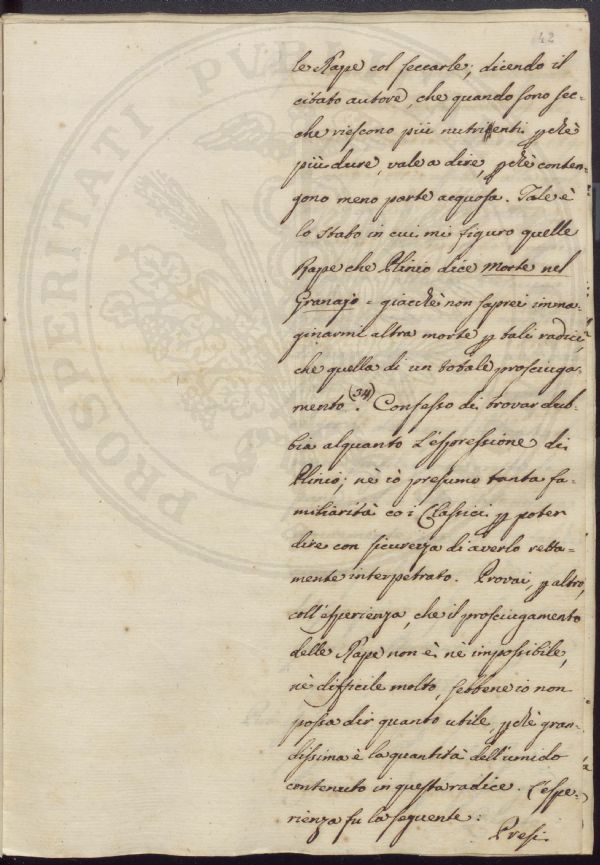 42
le Rape col seccarle; dicendo il
citato autore, che quando sono sec-
che riescono più nutrienti pchè
più dure, vale a dire, pchè conten-
gono meno parte acquosa. Tale è
lo stato in cui mi figuro quelle
Rape che Plinio dice Morte nel
Granajo = giacchè non saprei imma-
ginarmi altra morte p tali radici,
che quella di un totale prosciuga-
mento (34). Confesso di trovar dub-
bia alquanto l'espressione di
Plinio; nè io presumo tanta fa-
miliarità co i Classici p poter
dire con sicurezza di averlo retta-
mente interpetrato. Provai, p altro,
coll'esperienza, che il prosciugamento
delle Rape non è nè impossibile,
nè difficile molto, sebbene io non
possa dir quanto utile, pchè gran-
dissima è la quantità dell'umido
contenuto in questa radice. L'espe-
rienza fu la seguente:
Presi
PROSPERITATI PUBLI